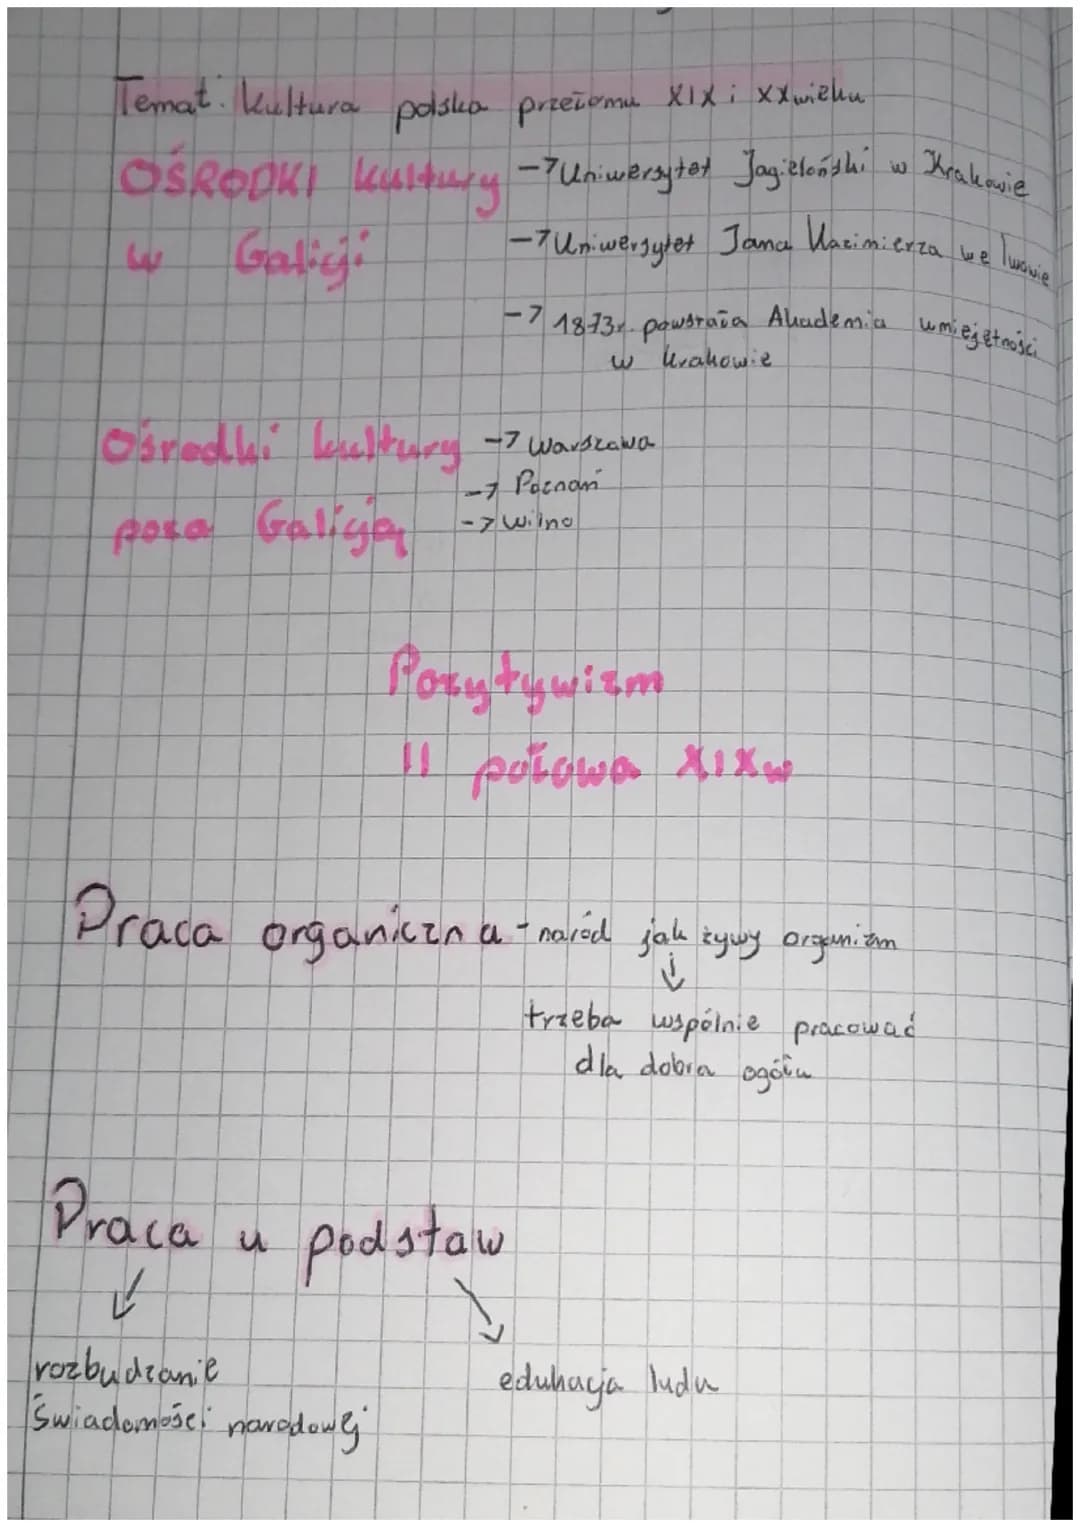 Temat: Kultura polska przełomu XIX i XX wieku
OŚRODKI kultury → Uniwersytet Jagieloński w Krakowie
w Galicji → Uniwersytet Jana Kazimierza we Lwowie
→ 1873r. powstała Akademia umiejętności
w krakowie
Ośrodki kultury → Warszawa
→ Poznań
poza Galicją → Wilno
Pozytywizm
II połowa XIXw
Praca organiczna - naród jak żywy organizm
↓
trzeba wspólnie pracować
dla dobra ogółu
Praca u podstaw
rozbudzanie edukacja ludu
świadomości narodowej